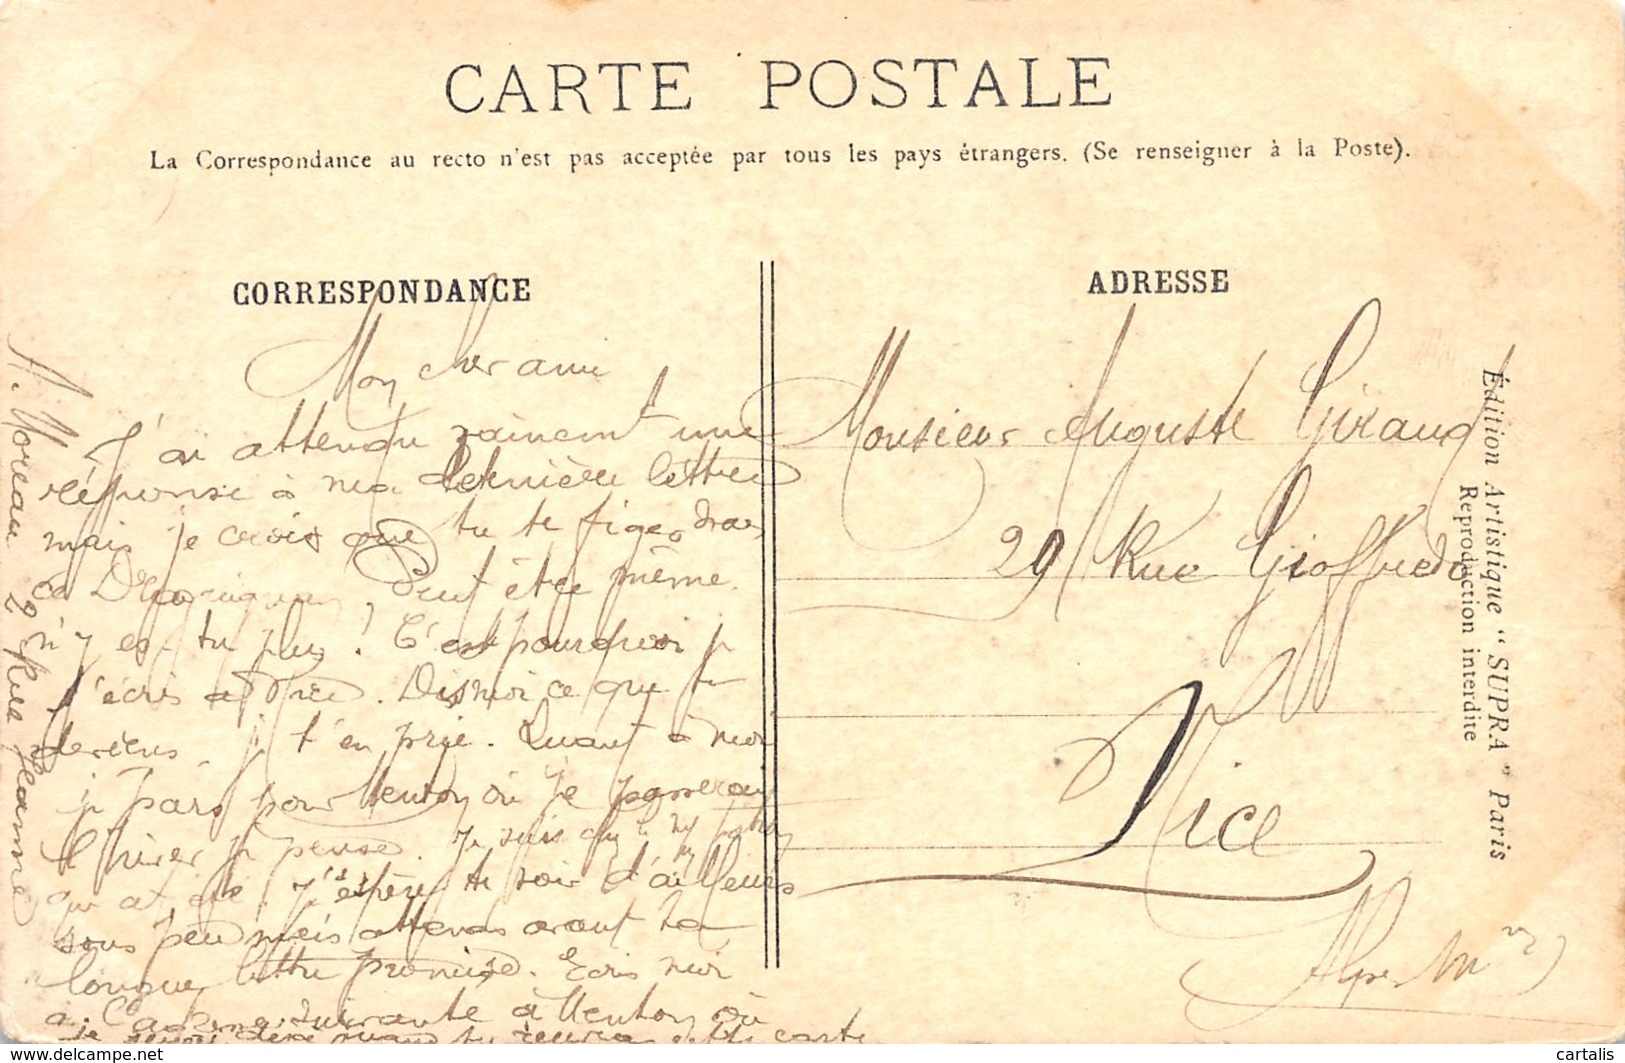 CARTE POSTALE
La Correspondance au recto n'est pas acceptée par tous les pays étrangers. (Se renseigner à la Poste).
CORRESPONDANCE
Mon cher ami
J'ai attendu vainement une
réponse à ma dernière lettre
mais je crois que tu te figes
à Draguignan. Peut être même
n'y es-tu plus ! C'est pourquoi je
t'écris à Nice. Dis moi ce que tu
deviens je t'en prie. Quant à moi
je pars pour Menton où je passerai
l'hiver je pense. Je suis
J'espère te voir d'ailleurs
sous peu mais attends avant ta
longue lettre promise. Ecris moi
à l'adresse suivante à Menton où
je serai quand tu recevras cette carte
A. Moreau 2 Rue
ADRESSE
Monsieur Auguste Giraud
29 Rue Gioffredo
Nice
(Alpes Mmes)
Édition Artistique "SUPRA" Paris
Reproduction interdite
www.delcampe.net
cartalis